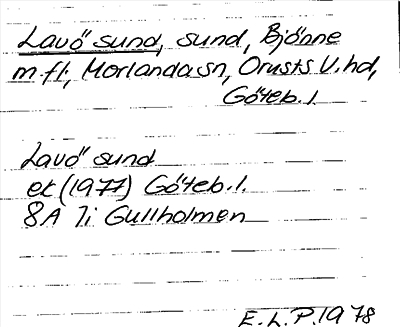 Lavö sund, sund, Björne
m fl, Morlanda sn, Orusts V. hd,
Göteb. l.
Lavö sund
ek (1977) Göteb. l.
8A 7i Gullholmen
E. L. P. 1978